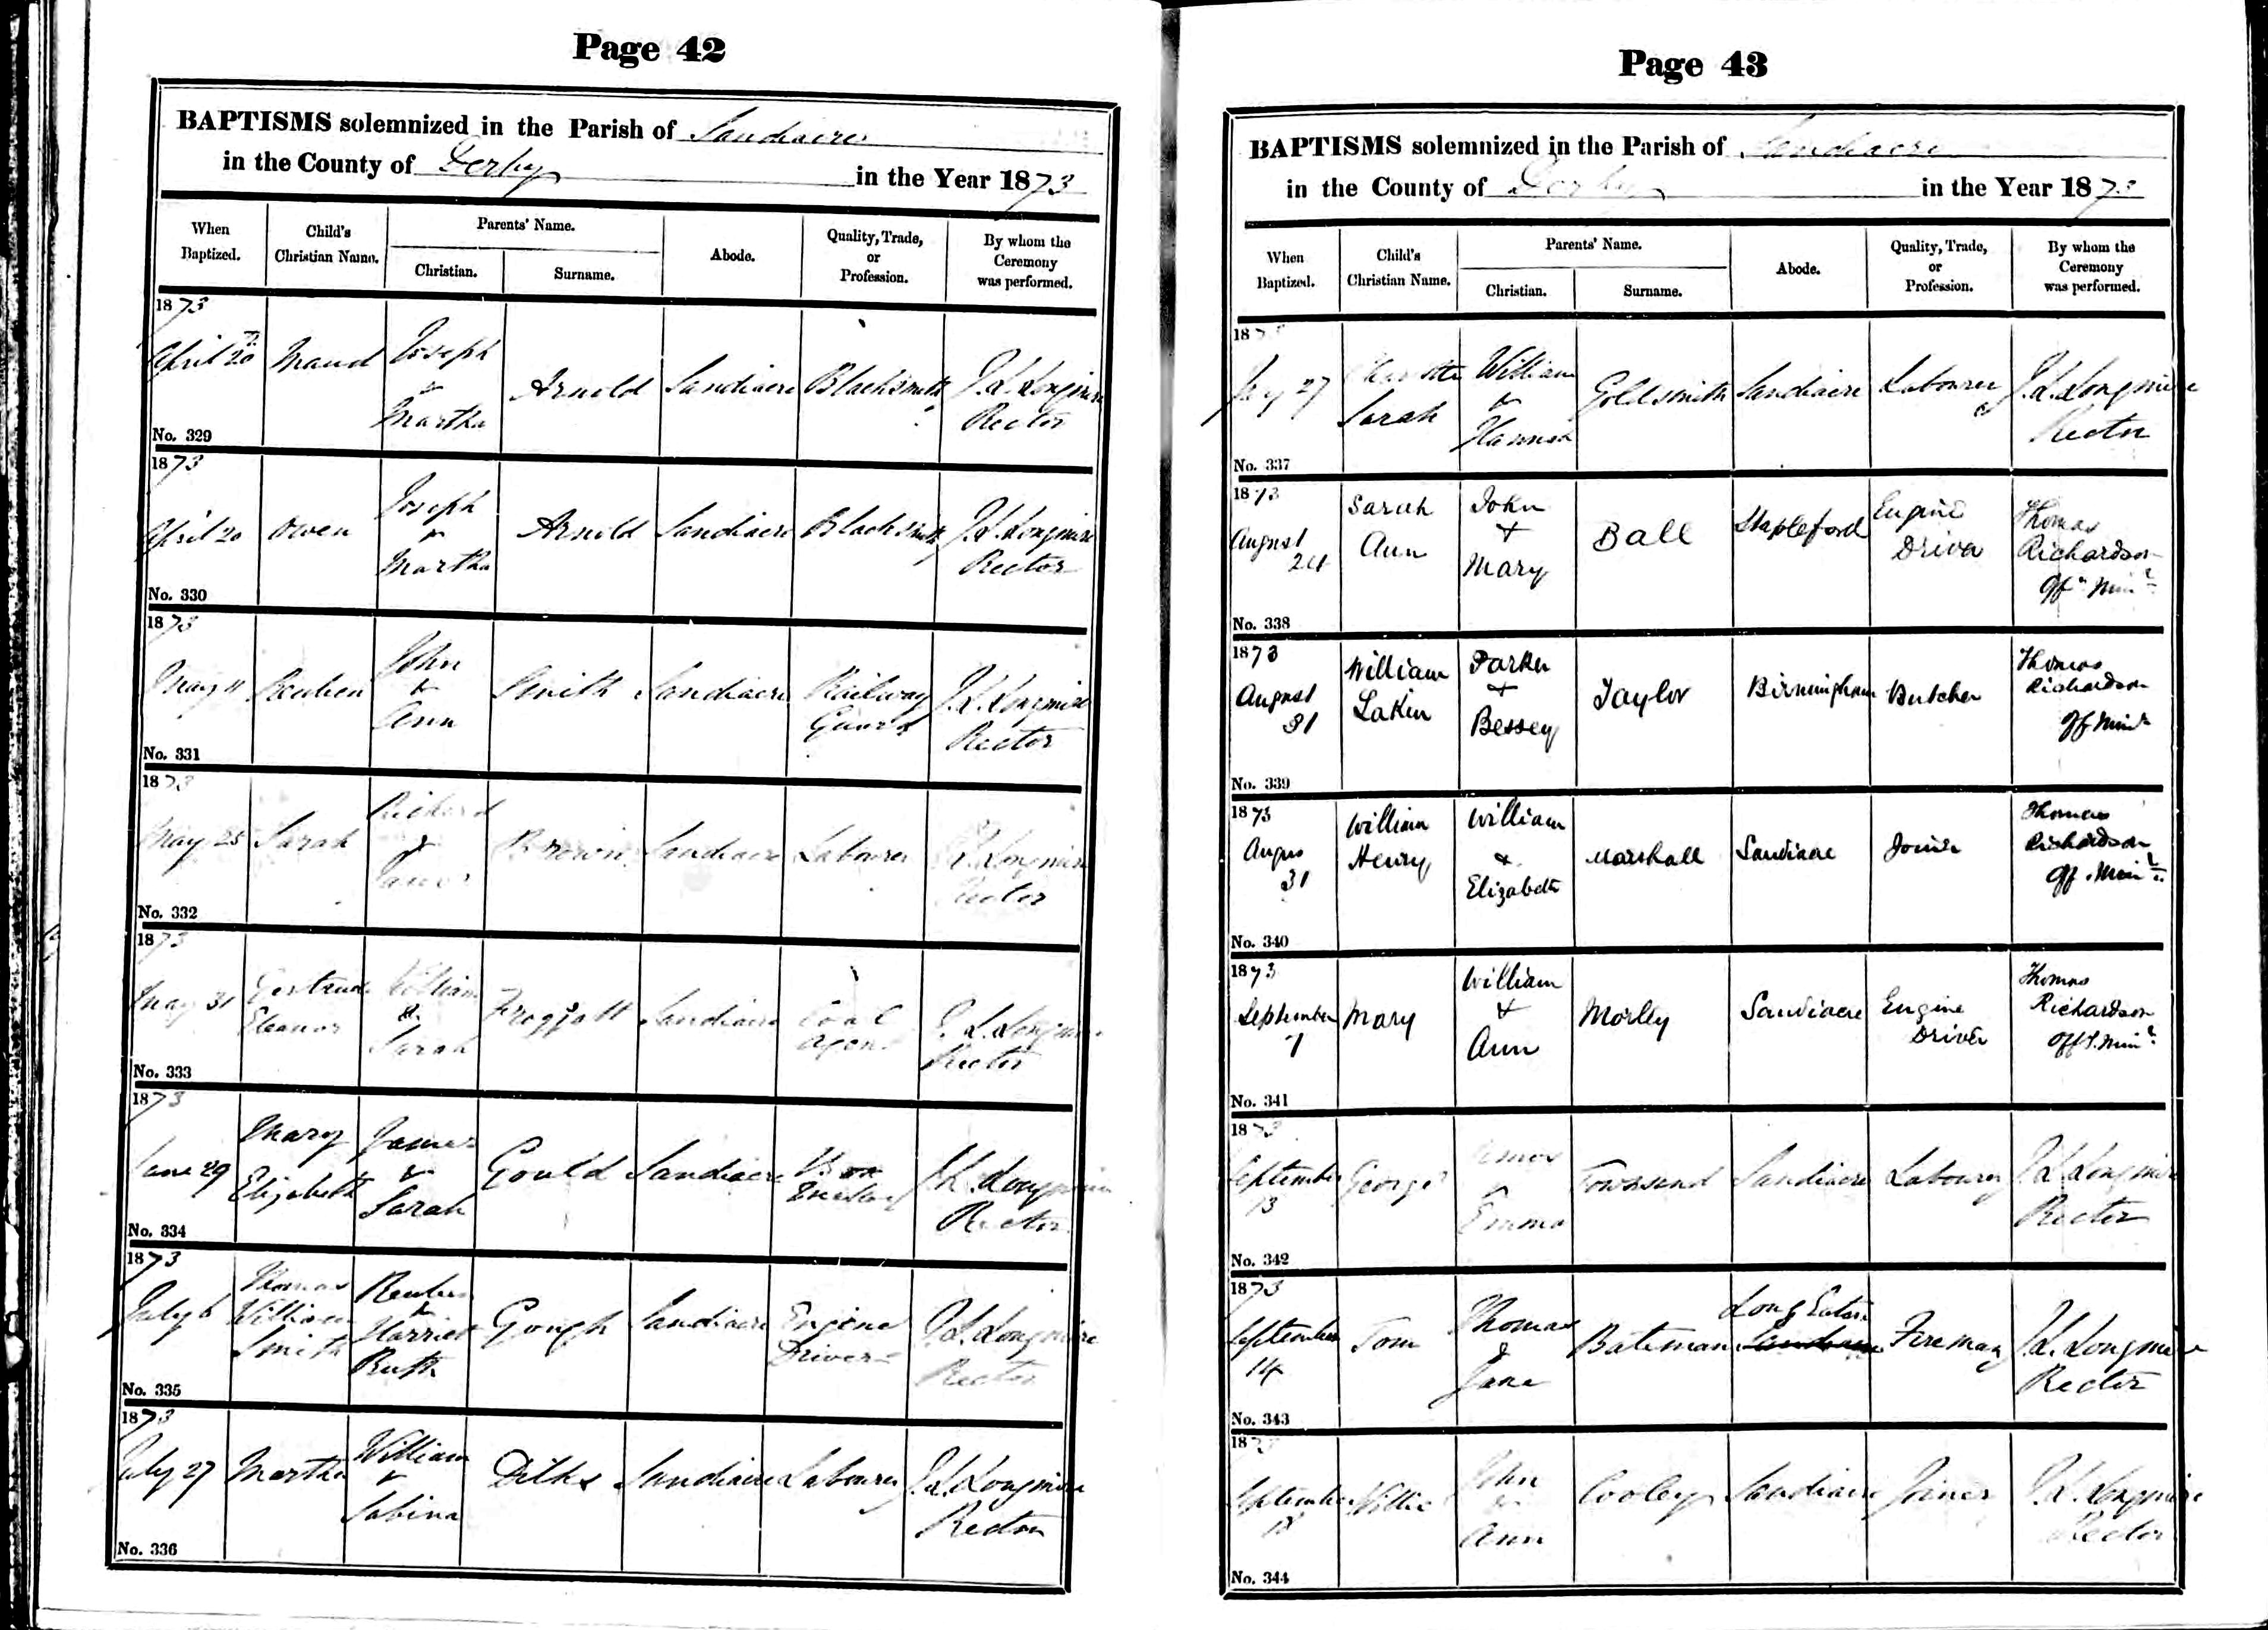 Page 42
BAPTISMS solemnized in the Parish of Sandiacre
in the County of Derby in the Year 1873
When Baptized. Child's Christian Name. Parents' Name. Christian. Surname. Abode. Quality, Trade, or Profession. By whom the Ceremony was performed.
1873
April 20 Maud Joseph & Martha Arnold Sandiacre Blacksmith J. L. Longmire Rector
No. 329
1873
April 20 Owen Joseph & Martha Arnold Sandiacre Blacksmith J. L. Longmire Rector
No. 330
1873
May 11 Reuben John & Ann Smith Sandiacre Railway Guard J. L. Longmire Rector
No. 331
1873
May 25 Sarah Richard & Brown Sandiacre Labourer J. L. Longmire Rector
No. 332
1873
May 31 Gertrude Eleanor William & Sarah Froggatt Sandiacre Coal Agent J. L. Longmire Rector
No. 333
1873
June 29 Mary Elizabeth James & Sarah Gould Sandiacre Iron J. L. Longmire Rector
No. 334
1873
July 6 Thomas William Smith Reuben & Harriet Ruth Gough Sandiacre Engine Driver J. L. Longmire Rector
No. 335
1873
July 27 Martha William & Sabina Dilks Sandiacre Labourer J. L. Longmire Rector
No. 336
Page 43
BAPTISMS solemnized in the Parish of Sandiacre
in the County of Derby in the Year 1873
When Baptized. Child's Christian Name. Parents' Name. Christian. Surname. Abode. Quality, Trade, or Profession. By whom the Ceremony was performed.
1873
July 27 Charlotte Sarah William & Hannah Goldsmith Sandiacre Labourer J. L. Longmire Rector
No. 337
1873
August 24 Sarah Ann John + Mary Ball Stapleford Engine Driver Thomas Richardson Off. Minr
No. 338
1873
August 31 William Lakin Parker + Bessey Taylor Birmingham Butcher Thomas Richardson Off Minr
No. 339
1873
Augus 31 William Henry William & Elizabeth Marshall Sandiacre Joiner Thomas Richardson Off. Minr.
No. 340
1873
September 7 Mary William + Ann Morley Sandiacre Engine Driver Thomas Richardson Offg. Minr.
No. 341
1873
September 13 George Amos & Emma Townsend Sandiacre Labourer J. L. Longmire Rector
No. 342
1873
September 14 Tom Thomas & Jane Bateman Long Eaton Sandiacre Fireman J. L. Longmire Rector
No. 343
1873
September Willie John & Ann Cooley Sandiacre Joiner J. L. Longmire Rector
No. 344